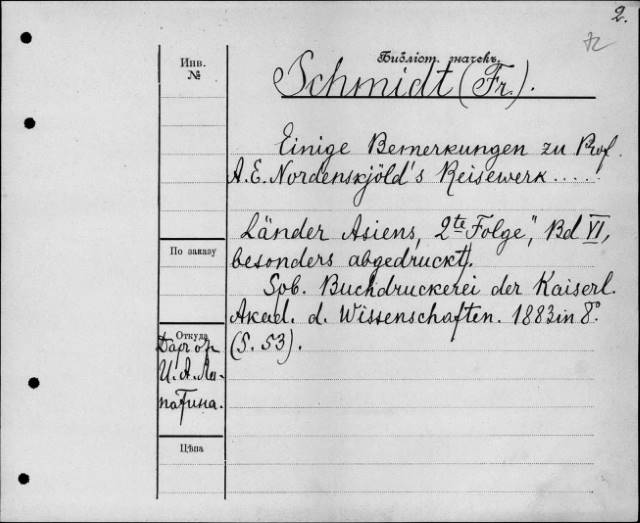 2.
Инв.
№
Библіот. значекъ.
Schmidt (Fr.).
Einige Bemerkungen zu Prof.
A. E. Nordenskjöld's Reisewerk.....
Länder Asiens, 2te Folge", Bd VI,
besonders abgedruckt).
По заказу
Spb. Buchdruckerei der Kaiserl.
Akad. d. Wissenschaften. 1883 in 8°.
(S. 53).
Откуда
Даръ отъ
И. А. Ло-
патина.
Цѣна